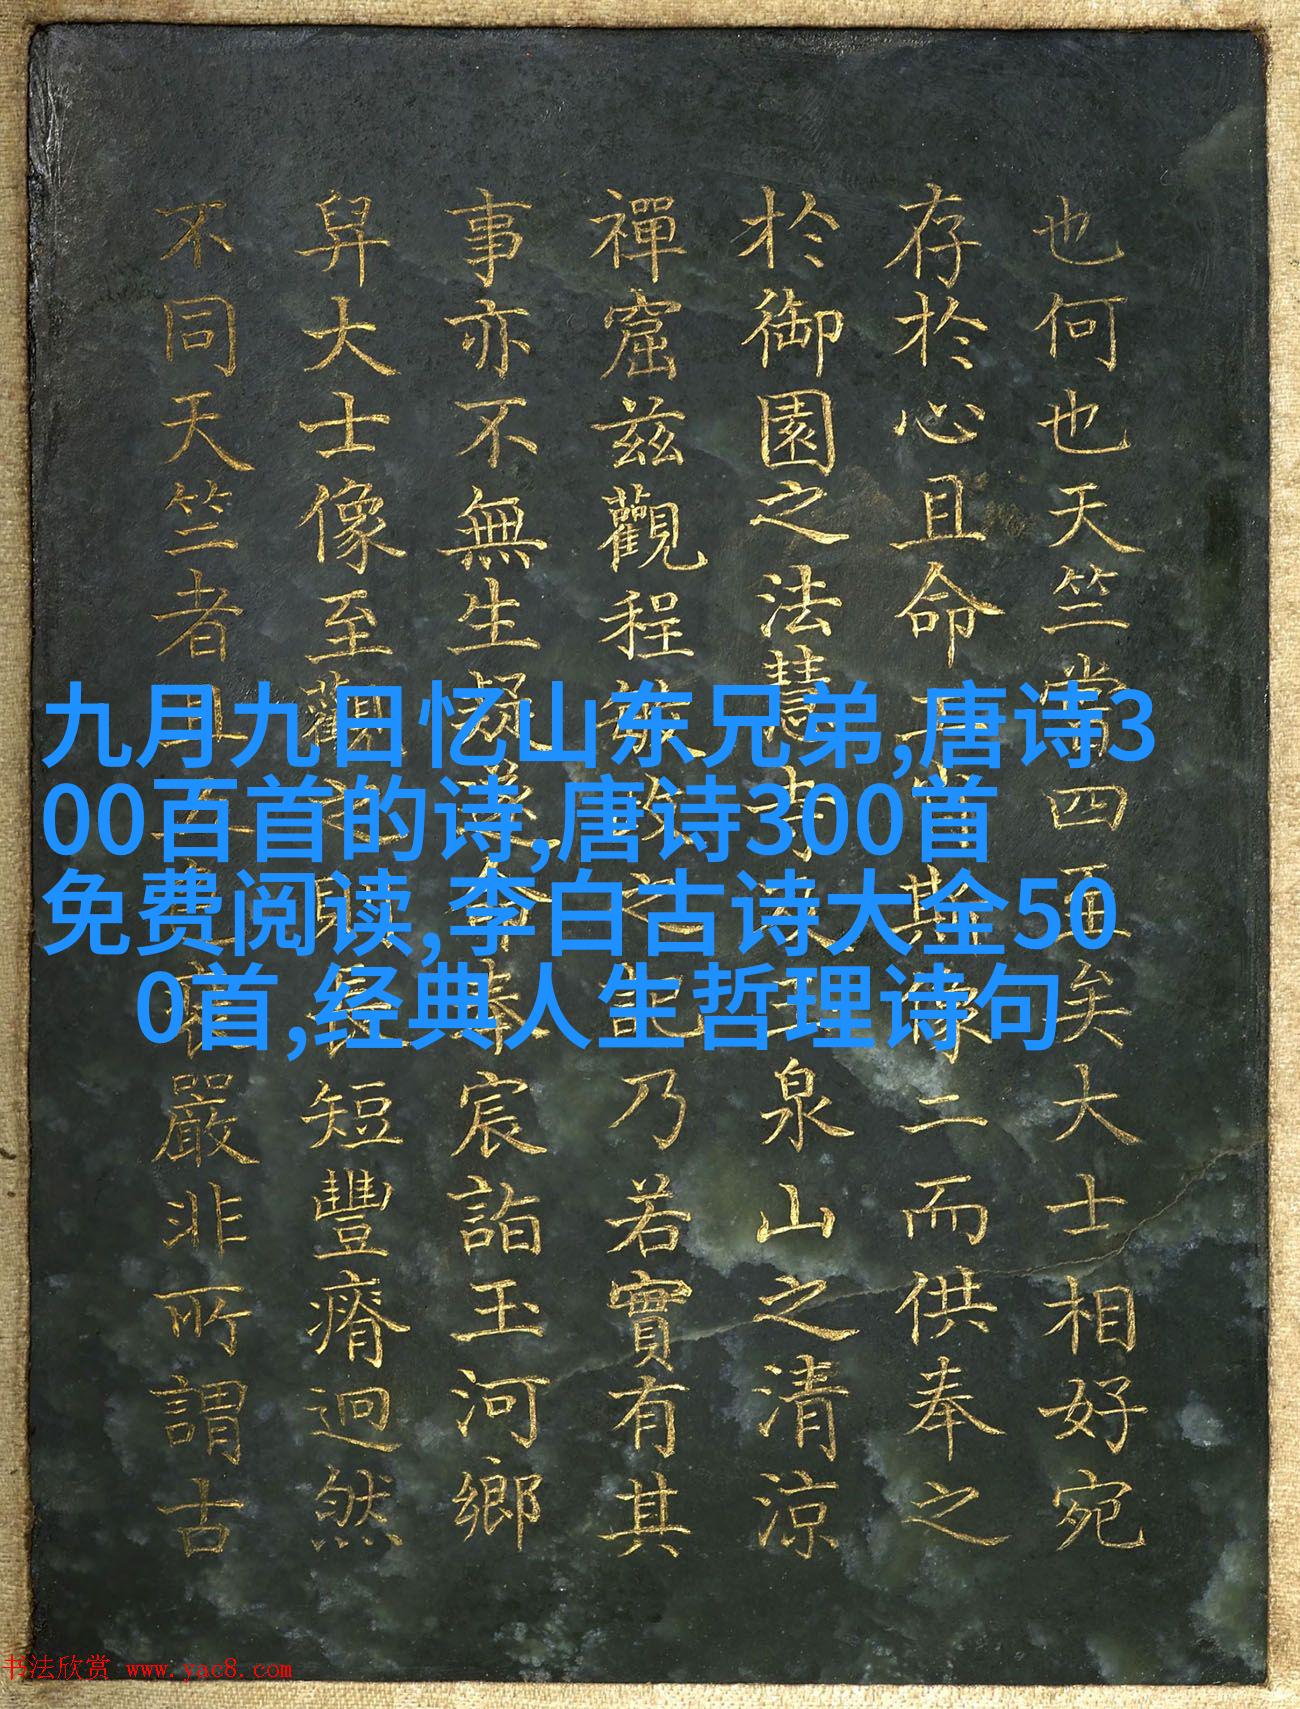 也何也天竺四五矣大士相好宛
存於心且命工肖斯像二而供奉之
於御園之法慧寺及玉泉山之清涼
禪窟茲觀程之記乃若實有其
事亦不無生疑遂命奉宸詣玉河鄉
舁大士像至觀之則長短豐瘠迥然
不同天竺者且嚴非所謂古
九月九日忆山东兄弟,唐诗3
00百首的诗,唐诗300首
免费阅读,李白古诗大全50
0首,经典人生哲理诗句
书法欣赏 www.yac8.com